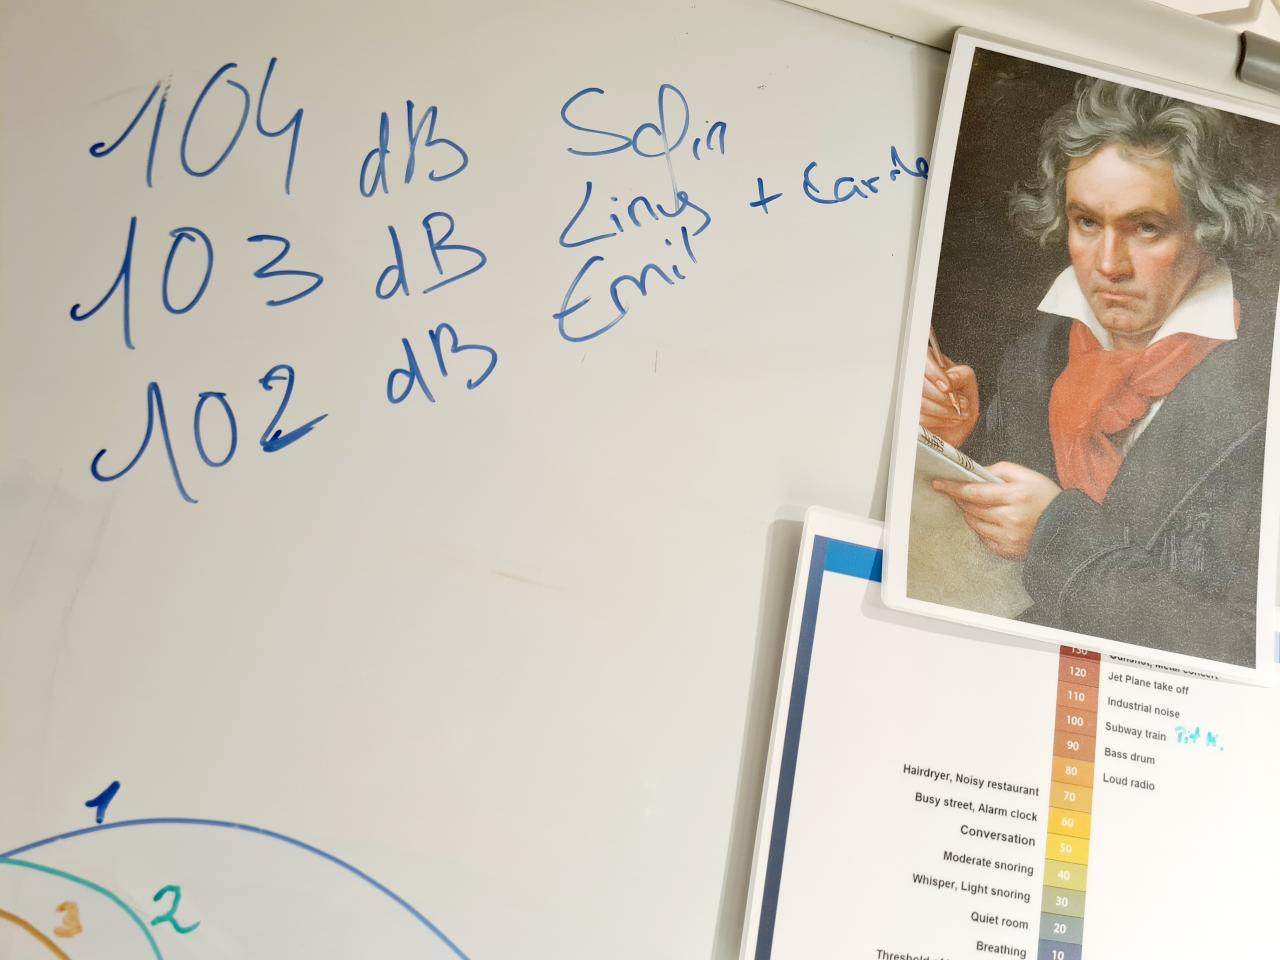 104 dB Selin
103 dB Linus +
102 dB Emil
1
2
3
130
120 Jet Plane take off
110 Industrial noise
100 Subway train
90 Bass drum
80 Loud radio
Hairdryer, Noisy restaurant 70
Busy street, Alarm clock 60
Conversation 50
Moderate snoring 40
Whisper, Light snoring 30
Quiet room 20
Breathing 10
Threshold of